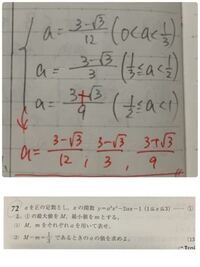 a = (3-√3)/12 (0<a<1/3)
a = (3-√3)/3 (1/3≦a<1/2)
a = (3+√3)/9 (1/2≦a<1)
a = (3-√3)/12, (3-√3)/3, (3+√3)/9
72 aを正の定数とし、xの関数 y=a²x²-2ax-1 (1≦x≦3) ――①
①の最大値をM、最小値をmとする。
M、mをそれぞれaを用いて表せ。
M-m=1/3 であるときのaの値を求めよ。